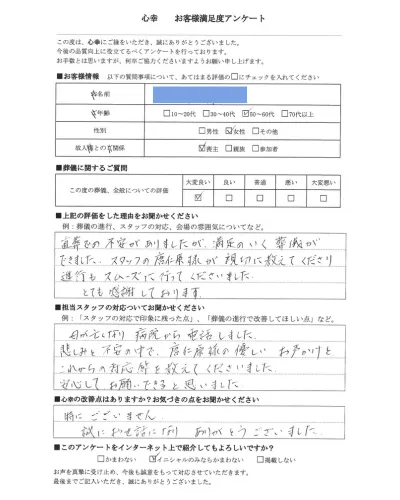 心幸　　お客様満足度アンケート
この度は、心幸にご縁をいただき、誠にありがとうございました。
今後の品質向上に役立てるべくアンケートを行っております。
お手数とは思いますが、何卒ご協力くださいますようお願い申し上げます。
■お客様情報　以下の質問事項について、あてはまる評価の□にチェックを入れてください
お名前
ご年齢　□10～20代　□30～40代　☑50～60代　□70代以上
性別　□男性　☑女性　□その他
故人様との関係　☑喪主　□親族　□参加者
■葬儀に関するご質問
大変良い　良い　普通　悪い　大変悪い
この度の葬儀、全般についての評価　☑　□　□　□　□
■上記の評価をした理由をお聞かせください
例：葬儀の進行、スタッフの対応、会場の雰囲気についてなど。
葬での不安がありましたが、満足のいく葬儀が
できました。スタッフの 原様が親切に教えてくださり
進行もスムーズに行ってくださいました。
とても感謝しております。
■担当スタッフの対応ついてお聞かせください
例：「スタッフの対応で印象に残った点」、「葬儀の進行で改善してほしい点」など。
母が亡くなり病院から電話しました。
悲しみと不安の中で、 原様の優しいお声かけと
これからの対応等を教えてくださいました。
安心してお願いできると思いました。
■心幸の改善点はありますか？お気づきの点をお聞かせください
特にございません
誠にお世話になり ありがとうございました。
■このアンケートをインターネット上で紹介してもよろしいですか？
□かまわない　☑イニシャルのみならかまわない　□掲載しない
お声を真摯に受け止め、今後も誠意をもって対応させていただきます。
最後までご記入いただき、誠にありがとうございました。